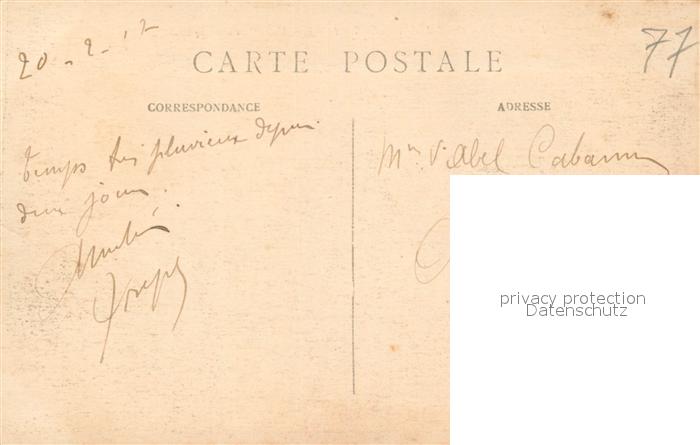 20 - 2 - 17
77
CARTE POSTALE
CORRESPONDANCE
ADRESSE
temps très pluvieux depuis
deux jours.
Joseph
Abel Cabanne
privacy protection
Datenschutz